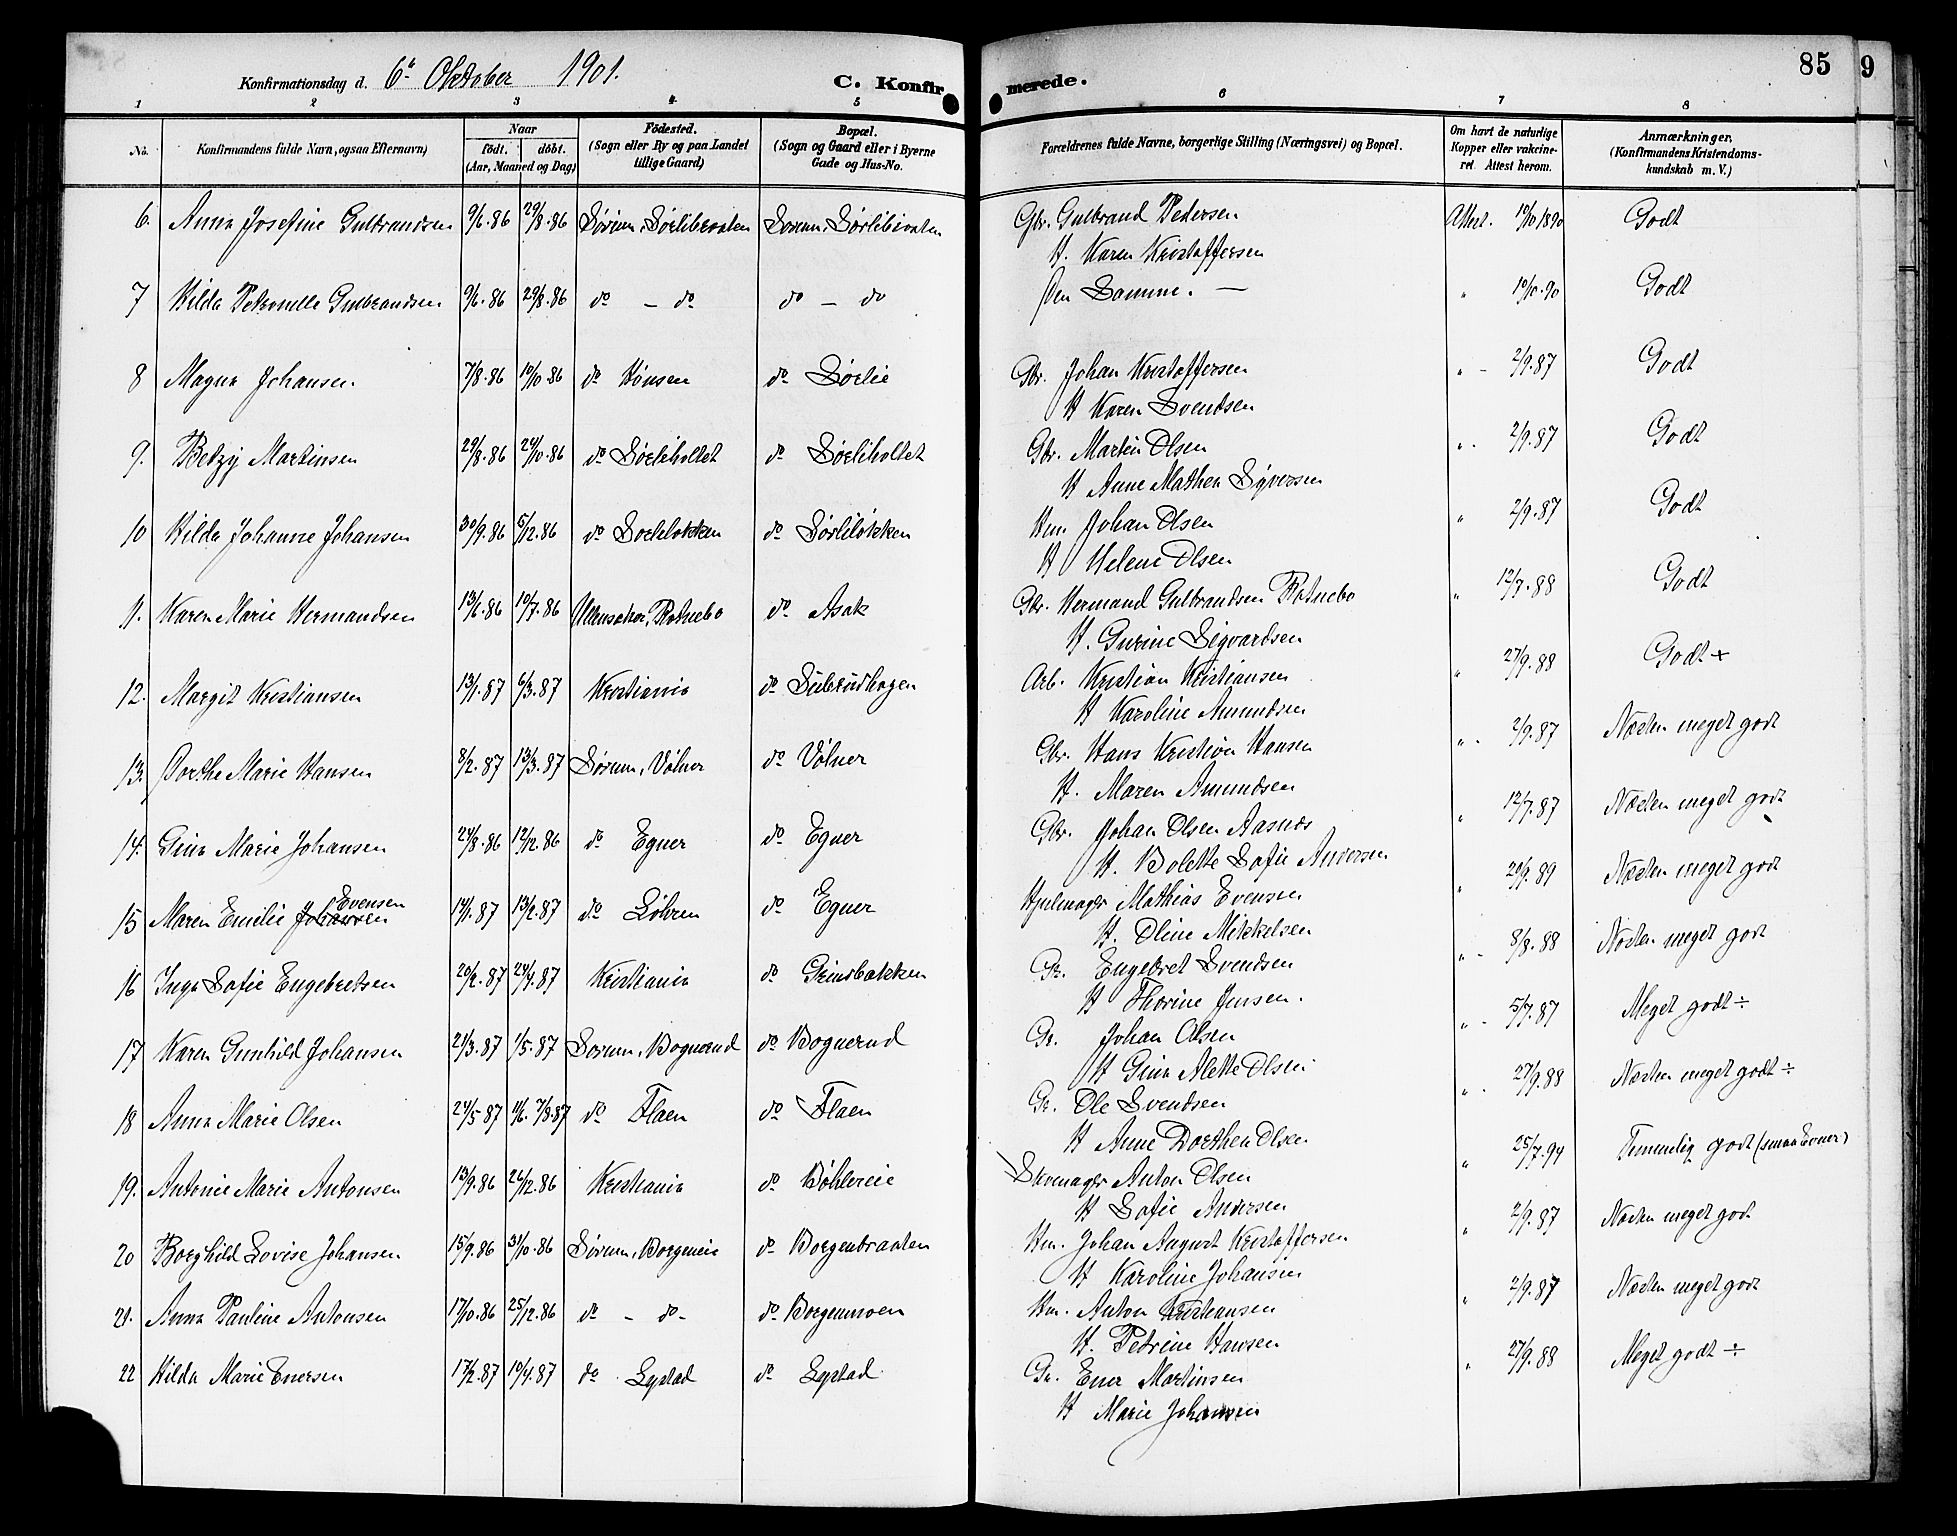 Konfirmationsdag d. 6te Oktober 1901.
C. Konfirmerede.
85
9
1 2 3 4 5 6 7 8
No. Konfirmandens fulde Navn, ogsaa Efternavn) Naar født. døbt. (Aar, Maaned og Dag) Fødested. (Sogn eller By og paa Landet tillige Gaard) Bopæl. (Sogn og Gaard eller i Byerne Gade og Hus-No. Forældrenes fulde Navne, borgerlige Stilling (Næringsvei) og Bopæl. Om havt de naturlige Kopper eller vakcineret. Attest herom. Anmærkninger. (Konfirmandens Kristendomskundskab m. V.)
6. Anna Josefine Gulbrandsen 9/6.86 29/8.86 Sørum, Sørlibraaten Sørum, Sørlibraaten Gbr. Gulbrand Pedersen Attest. 10/10 1890 Godt
H. Karen Kristoffersen
7 Hilda Petronelle Gulbrandsen 9/6.86 29/8.86 do – do do – do Den Samme. — " 10/10.90 Godt
8 Magna Johansen 7/8.86 10/10.86 do Hønsen do Sørlie Gbr. Johan Kristoffersen " - 2/9.87 Godt
H Karen Svendsen
9. Betzy Martinsen 29/8.86 24/10.86 do Sørliholtet do Sørliholtet Gbr. Martin Olsen " - 2/9.87 Godt
H Anne Mathea Syversen
10 Hilda Johanne Johansen 30/9.86 5/12.86 do Sørliløkken do Sørliløkken Hm. Johan Olsen " 2/9.87 Godt
H Helene Olsen
11. Karen Marie Hermandsen 13/6.86 10/7.86 Ullensaker, Rotnebo do Asak Gbr. Hermand Gulbrandsen Rotnebo " 12/7.88 Godt
H. Gurine Sigvartsen
12. Margit Kristiansen 13/1.87 6/3.87 Kristiania do Arb. Kristian Kristiansen " 27/9.88 Godt +
H Karoline Amundsen
13. Dorthe Marie Hansen 8/2.87 13/3.87 Sørum, Vølner do Vølner Gbr. Hans Kristian Hansen " - 2/9.87 Næsten meget godt
H. Maren Amundsen
14. Gina Marie Johansen 24/8.86 12/12.86 do Egner do Egner Gbr. Johan Olsen Aasnes " 12/7.87 Næsten meget godt
H. Bolette Sofie Andersen
15 Maren Emilie Johansen Evensen 14/1.87 13/2.87 do Løhren do Egner Hjulmager Mathias Evensen " 20/9.89 Næsten meget godt
H. Oline Mikkelsen
16 Inga Sofie Engebretsen 20/2.87 24/4.87 Kristiania do Grinsbakken Gr. Engebret Svendsen " - 8/8.88 Næsten meget godt
H Thorine Jensen.
17 Karen Gunhild Johansen 21/3.87 1/5.87 Sorum, Bognerud do Bognerud Gr. Johan Olsen " - 5/7.87 Meget godt ÷
H Gina Alette Olsen
18 Anna Marie Olsen 24/5.87 11/6. 7/8.87 do Flaen do Flaen Gr. Ole Svendsen " - 27/9.88 Næsten meget godt ÷
H Anne Dorthea Olsen
19. Antonie Marie Antonsen 13/9.86 26/12.86 Kristiania do Bøhlereie Skomager Anton Olsen " 25/7.94 Temmelig godt (smaa Evner)
H Sofie Andersen
20 Borghild Lovise Johansen 15/9.86 31/10.86 Sørum, Borgeneie do Borgenbraaten Hm. Johan August Kristoffersen " 2/9.87 Næsten meget godt
H Karoline Johansen
21. Anna Pauline Antonsen 17/10.86 25/12.86 do – do – do Borgenmoen Hm. Anton Kristiansen " 2/9.87 Næsten meget godt
H. Petrine Hansen
22 Hilda Marie Enersen 17/2.87 10/4.87 do Lystad do Lystad Gr. Ener Martinsen " 27/9.88 Meget godt ÷
H Marie Johansen